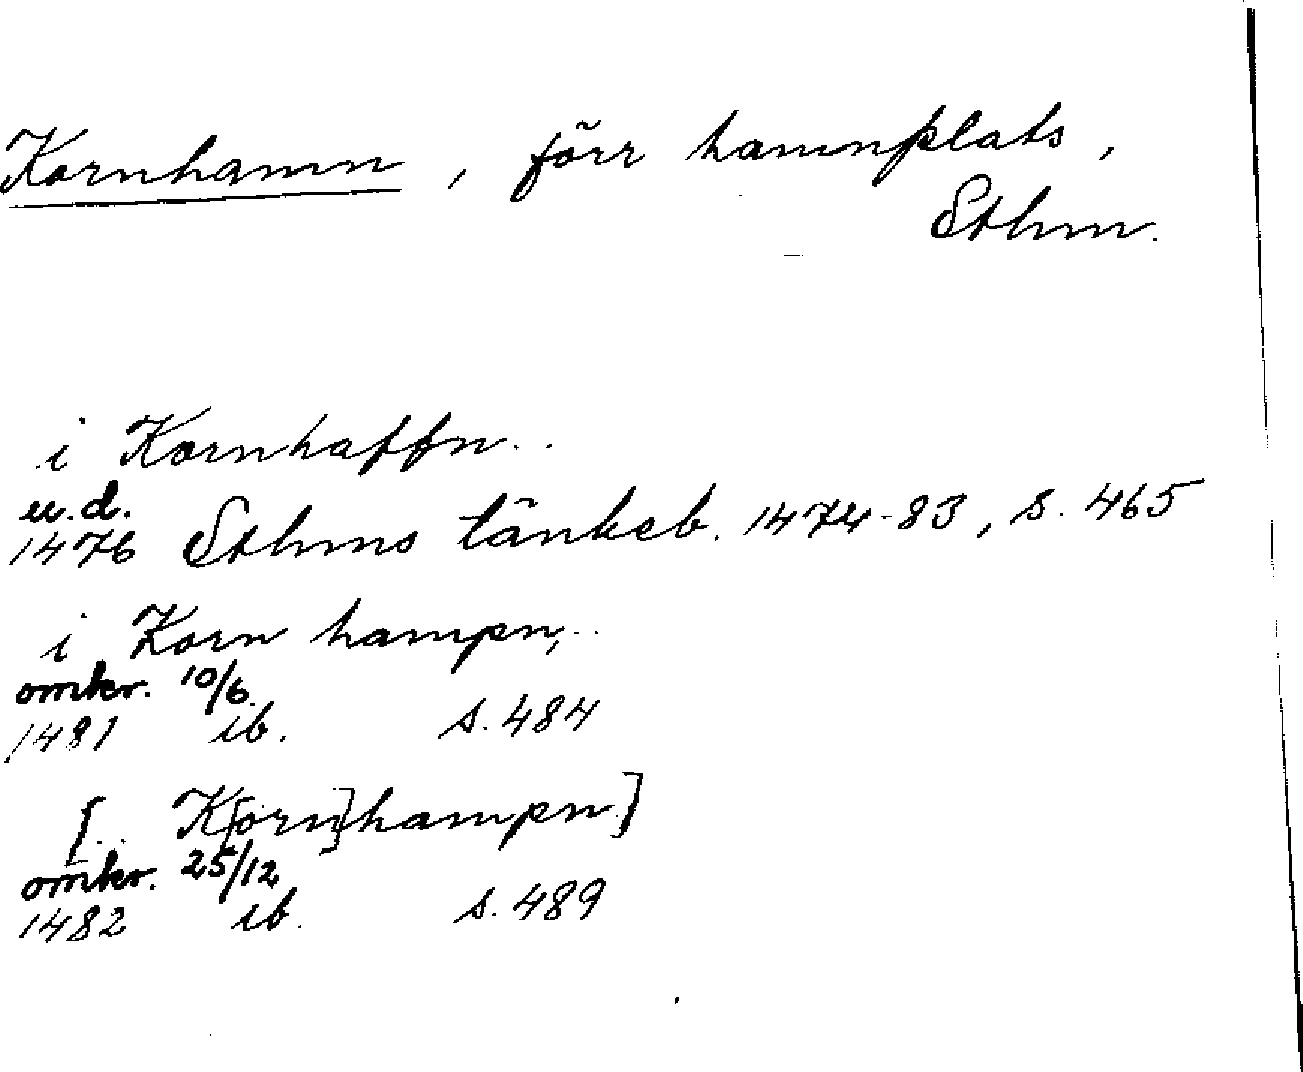 Kornhamn, förr hamnplats,
Sthm.
i Kornhaffn..
u.d.
1476 Sthms tänkeb. 1474-83, s. 465
i Korn hampn,..
omkr. 10/6
1481 ib. s. 484
[.. K[orn]hampn.]
omkr. 25/12
1482 ib. s. 489